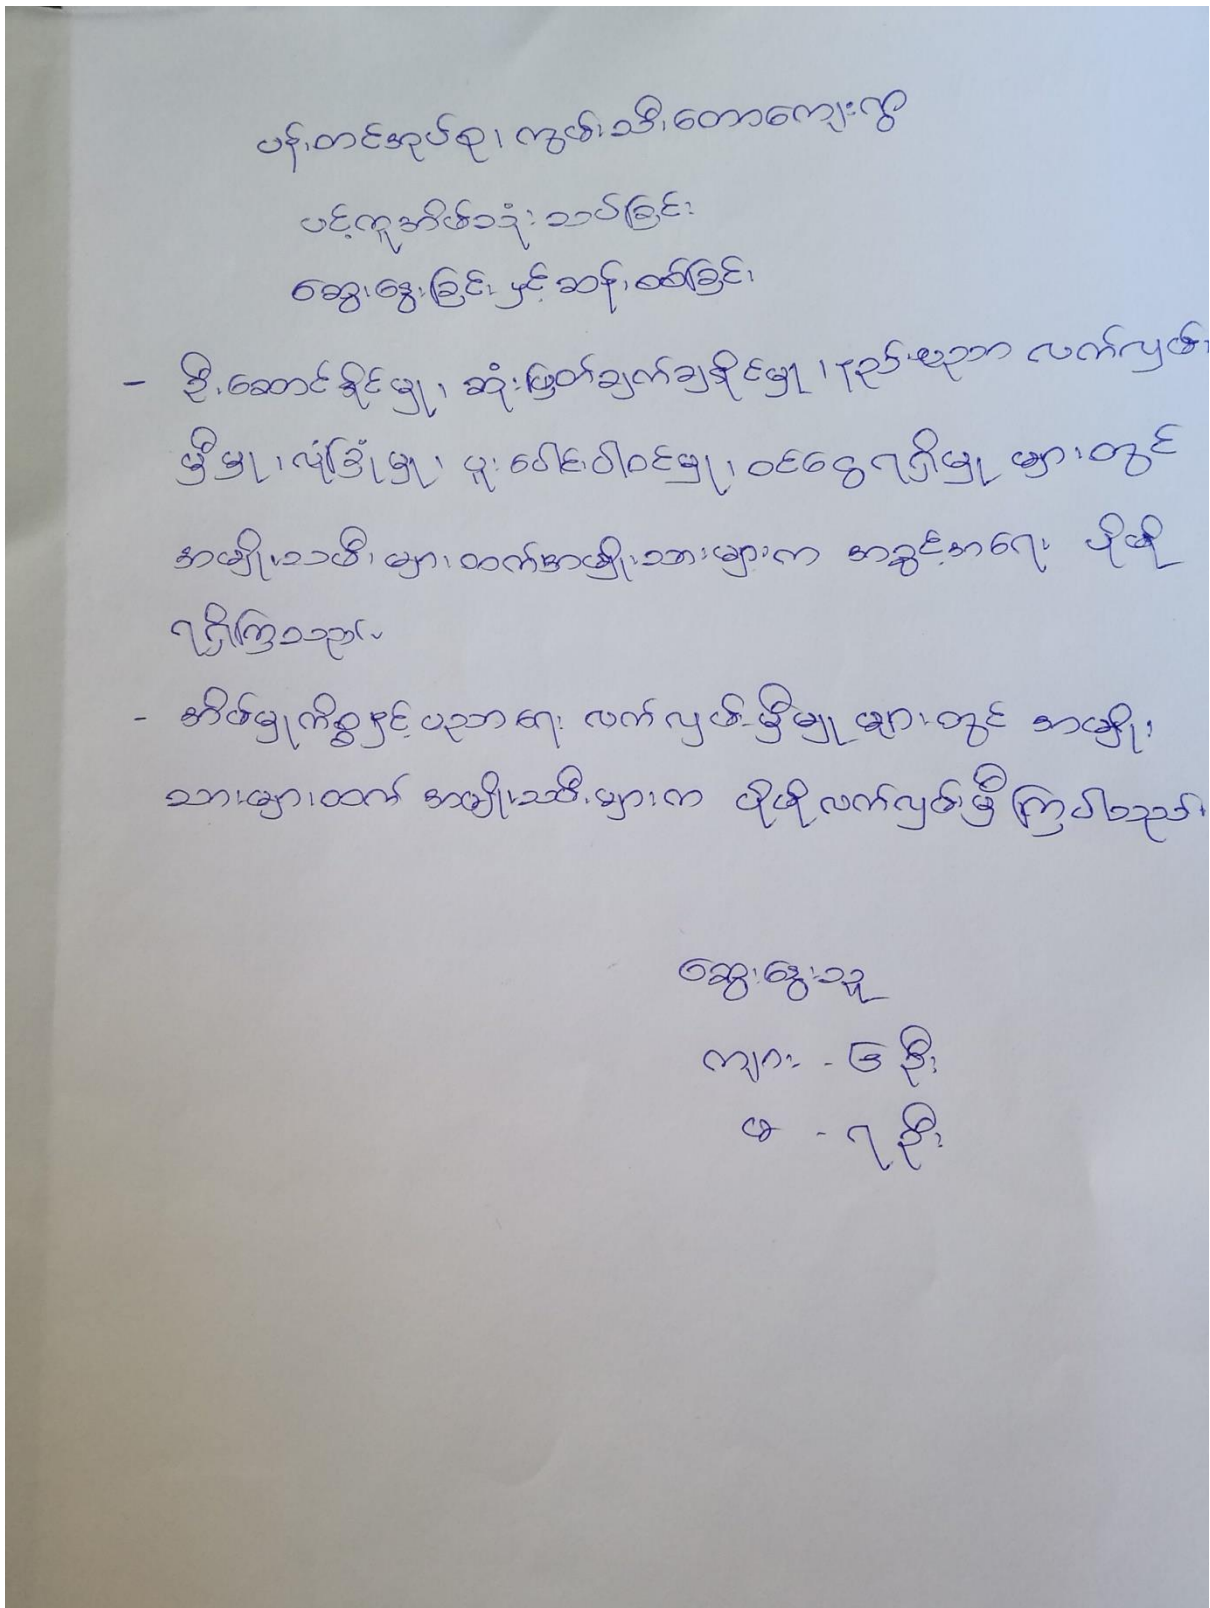 ပန်းတင်အုပ်စု၊ ကွမ်းသီးတောကျေးရွာ
ပင့်ကူအိမ်သုံးသပ်ခြင်း
ဆွေးနွေးခြင်းနှင့် ဆန်းစစ်ခြင်း
- ဦးဆောင်နိုင်မှု၊ ဆုံးဖြတ်ချက်ချနိုင်မှု၊ နည်းပညာ လက်လှမ်း
မှီမှု၊ လုံခြုံမှု၊ ပူးပေါင်းပါဝင်မှု၊ ဝင်ငွေရရှိမှု များတွင်
အမျိုးသမီးများထက်အမျိုးသားများက အခွင့်အရေး ပိုမို
ရရှိကြသည်။
- အိမ်မှုကိစ္စနှင့်ပညာရေး လက်လှမ်းမှီမှု များတွင် အမျိုး
သားများထက် အမျိုးသမီးများက ပိုမိုလက်လှမ်းမှီကြပါသည်။
ဆွေးနွေးသူ
ကျား - ၆ ဦး
မ - ၇ ဦး